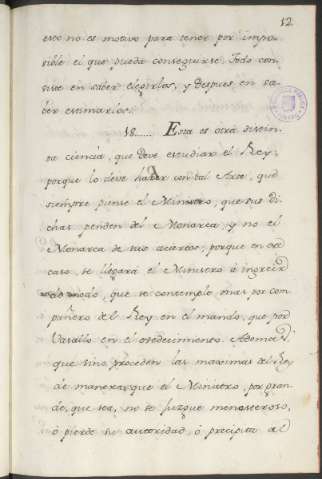 12
esto no es motivo para tener por impo-
sible el que pueda conseguirse. Todo con-
siste en saber elegirlas, y despues en sa-
ber estimarlas.
18...... Esta es otra distin-
ta ciencia, que deve estudiar el Rey,
porque lo deve hazer con tal Arte, que
siempre piense el Ministro, que sus di-
chas penden del Monarca, y no el
Monarca de sus aciertos, porque en ese
caso, se llegará el Ministro á ingreir
de modo, que se contemple mas por com-
pañero del Rey en el mando, que por
Vasallo en el obedecimiento. Ademas,
que sino proceden las maximas del Rey
de manera, que el Ministro, por gran-
de, que sea, no se juzgue menesteroso,
ó pierde su autoridad, ó precipita al